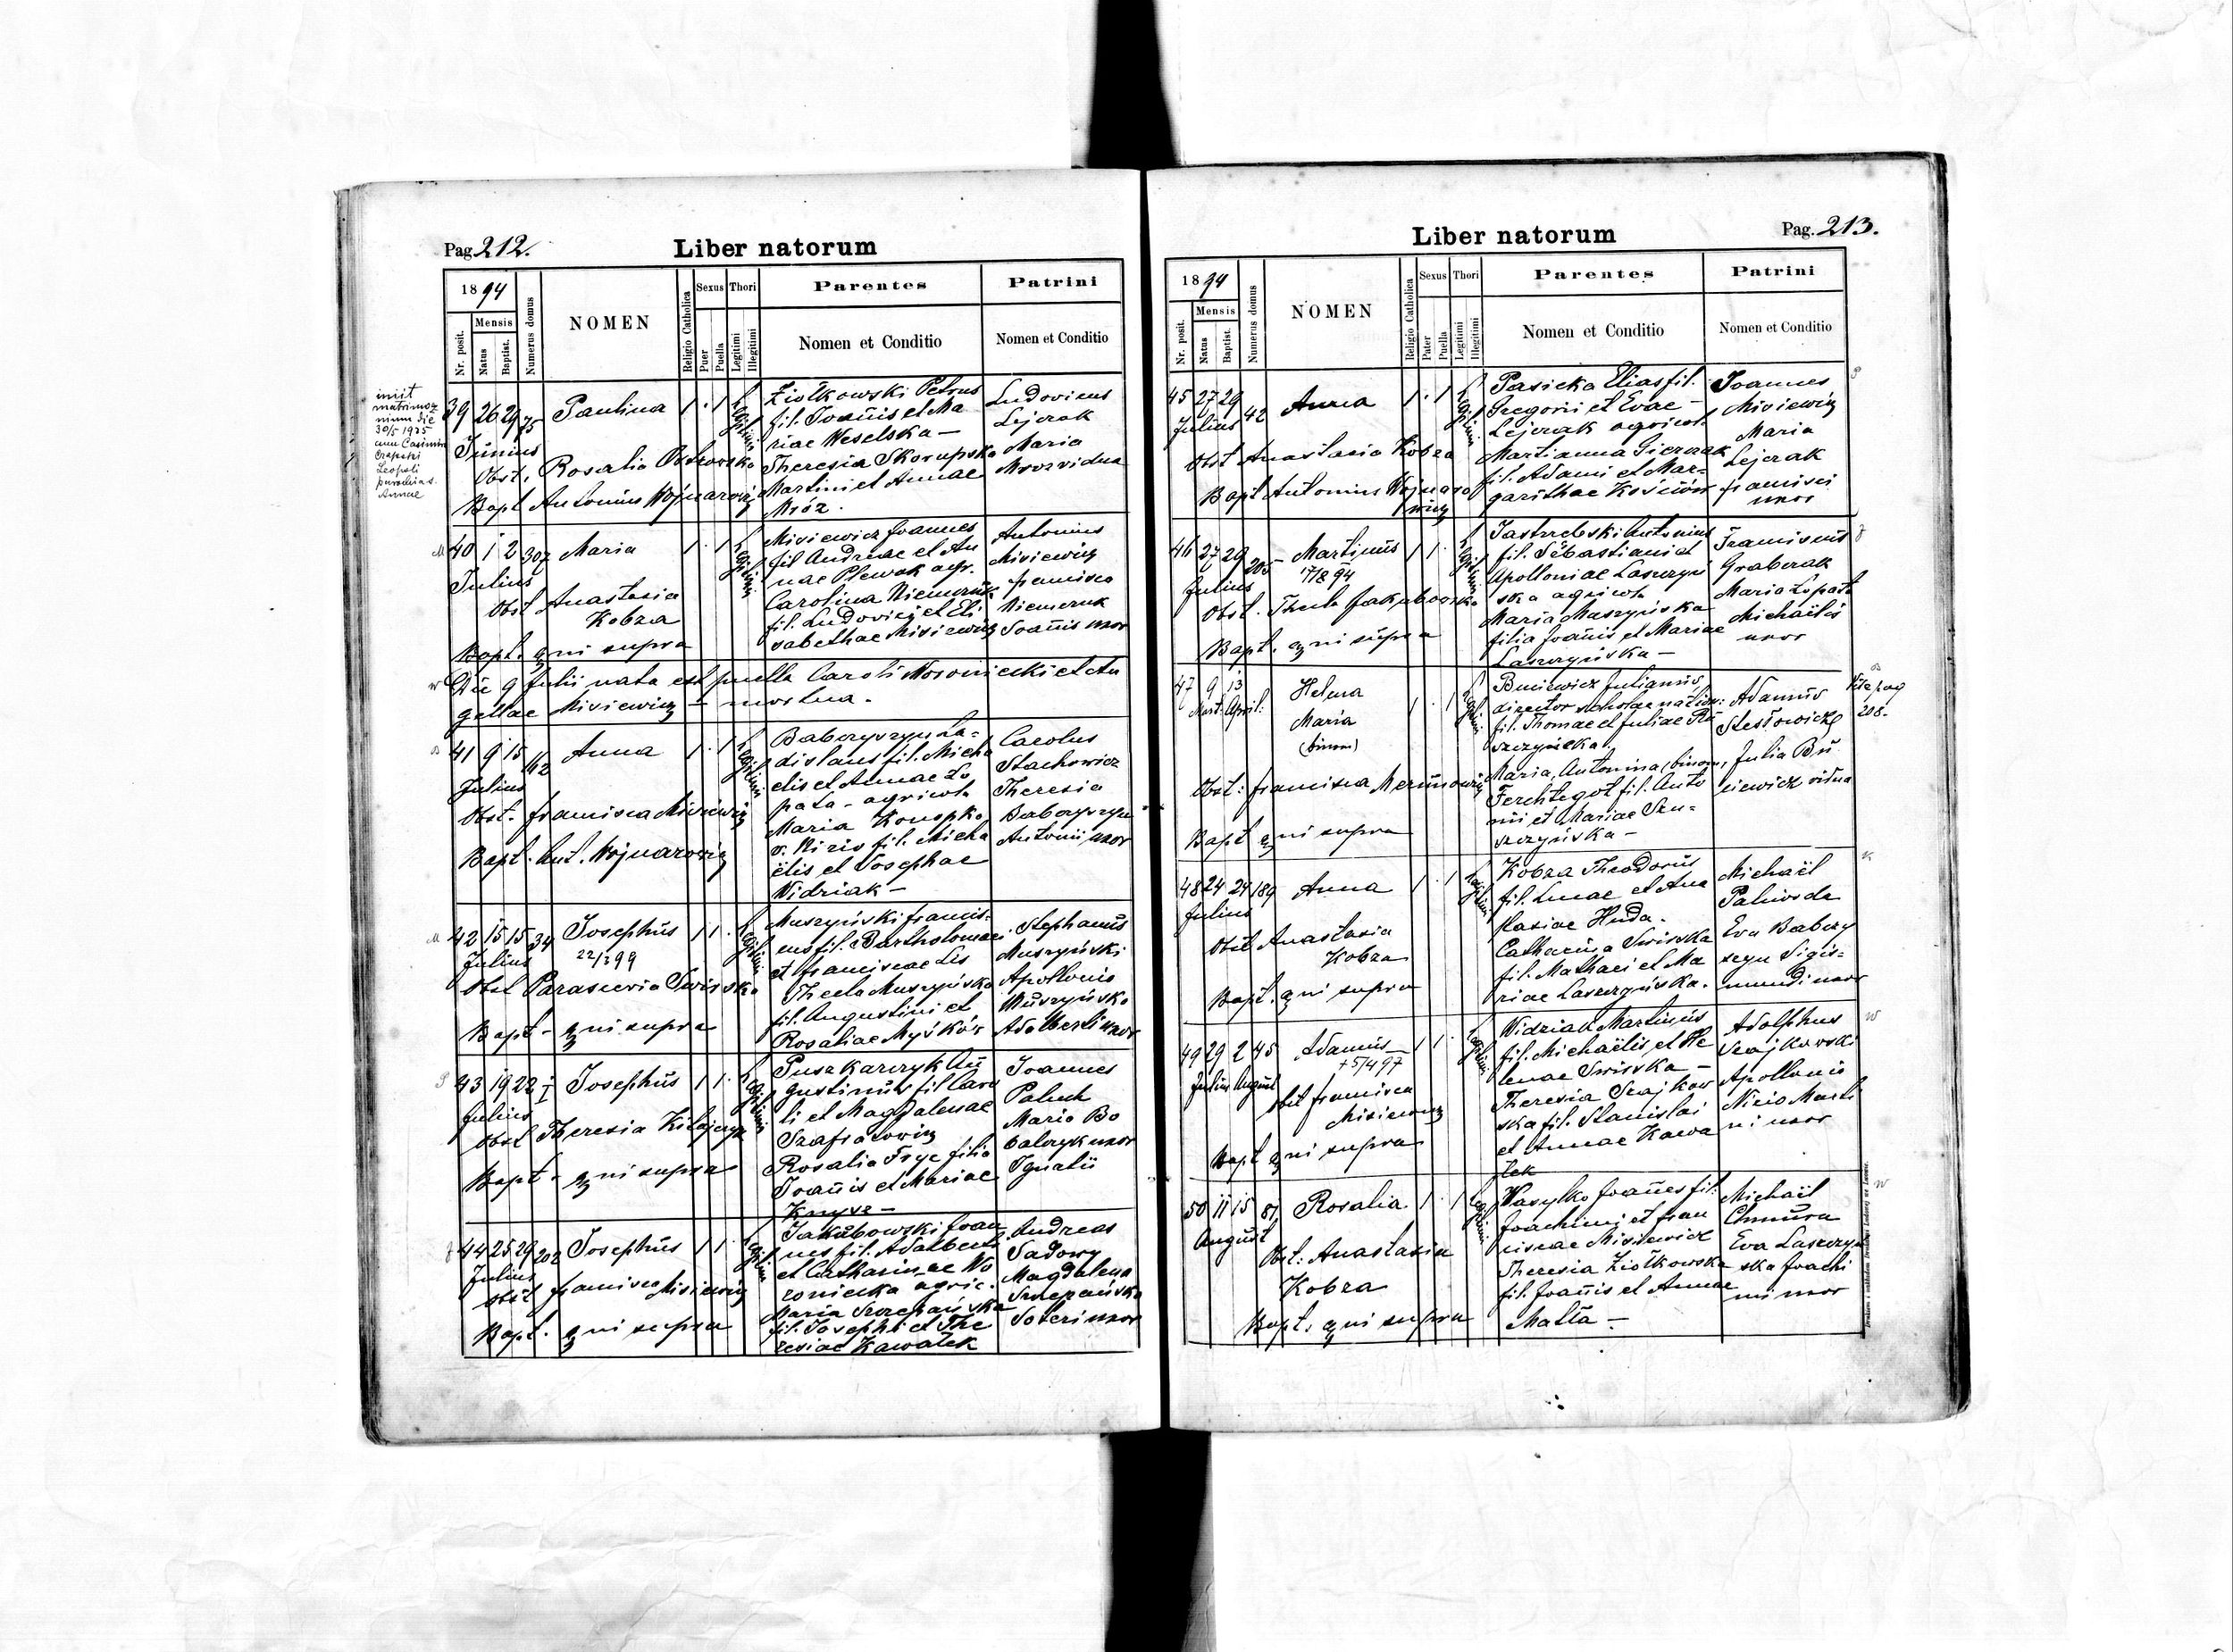 Pag. 212.
Liber natorum
1894
Nr. posit.
Mensis
Natus
Baptist.
Numerus domus
NOMEN
Religio Catholica
Sexus
Puer
Puella
Thori
Legitimi
Illegitimi
Parentes
Nomen et Conditio
Patrini
Nomen et Conditio
iniit
matrimo-
nium die
30/5 1925
cum Casimiro
Leopoli
Annae
39 26 29 75 Paulina 1 . 1 Legitimi
Junius
Obst. Rosalia
Bapt Antonius Wojnarowicz
Ziołkowski Petrus
fil. Joannis et Ma
riae Weselska –
Theresia Skorupska
Martini et Annae
Mróz.
Ludovicus
Lejczak
Maria
Mroz vidua
M
40 1 2 307 Maria 1 . 1 Legitimi
Julius
Obst Anastasia
Kobza
Bapt. qui supra
Misiewicz Joannes
fil Andreae et An
nae Plewak agr.
Carolina Niemczuk
fil. Ludovici et Eli
sabethae Misiewicz
Antonius
Misiewicz
Francisca
Niemczuk
Joannis uxor
Die 9 Julii nata est puella Caroli Nosowiecki et An
gellae Misiewicz – mortua.
B
41 9 15 162 Anna 1 . 1 Legitimi
Julius
Obst. Francisca Misiewicz
Bapt. Ant. Wojnarowicz
Babczyszyn La-
dislaus fil. Micha
elis et Annae Lo
pata – agricola
Maria Konopka
v. Nizio fil. Micha
ëlis et Josephae
Widziak –
Carolus
Stachowicz
Theresia
Babczyszyn
Antonii uxor
M
42 15 15 34 Josephus 1 1 . Legitimi
Julius 22/3 99
Obst Parascevia Swirska
Bapt – qui supra
Muszyński Francis-
cus fil. Bartholomaei
et Franciscae Lis
Thecla Muszyńska
fil. Augustini et
Rosaliae Myśków
Stephanus
Muszyński
Apollonia
Muszyńska
Adalberti uxor
43 19 22 Josephus 1 1 . Legitimi
Julius
Obst Theresia
Bapt – qui supra
Puszkarczyk Au
gustinus fil Caro
li et Magdalenae
Szafratowicz
Rosalia Fryc filia
Joannis et Mariae
Knysz –
Joannes
Paluch
Maria Bo
balczyk uxor
Ignatii
J
44 25 29 202 Josephus 1 1 . Legitimi
Julius
Obst Francisca Misiewicz
Bapt. qui supra
Jakubowski Joan
nes fil. Adalberti
et Catharinae No
Maria Szczepańska
fil. Josephi et The
resiae Kawałek
Andreas
Sadowy
Magdalena
Szczepańska
Soteri uxor
Liber natorum
Pag. 213.
1894
Nr. posit.
Mensis
Natus
Baptist.
Numerus domus
NOMEN
Religio Catholica
Sexus
Pater
Puella
Thori
Legitimi
Illegitimi
Parentes
Nomen et Conditio
Patrini
Nomen et Conditio
P
45 27 29 42 Anna 1 . 1 Legitimi
Julius
Obst Anastasia Kobza
Bapt Antonius Wojnaro
wicz
Pasicka Elias fil.
Gregorii et Evae –
Lejczak agricol.
Martianna Gierczak
fil. Adami et Mar-
garithae Kościów
Joannes
Misiewicz
Maria
Lejczak
Francisci
uxor
J
46 27 29 205 Martinus 1 1 . Legitimi
Julius 17/8 94
Obst. Thecla Jakubowska
Bapt. qui supra
Jastrzebski Antonius
fil. Sebastiani et
Apolloniae Laszczyń
ska agricola
Maria Muszyńska
filia Joannis et Mariae
Laszczyńska –
Franciscus
Grabczak
Maria Lopata
Michaëlis
uxor
B
47 9 13 Helena 1 . 1 Legitimi
Mart. April:
Maria
(binom)
Obst: Francisca
Bapt qui supra
Buciewicz Julianus
director scholae
fil. Thomae et Juliae
Maria, Antonina, (binom)
Ferchtegot fil. Anto
nii et Mariae
Adamus
Julia Bu
ciewicz vidua
Vide pag
208.
K
48 24 29 189 Anna 1 . 1 Legitimi
Julius
Obst Anastasia
Kobza
Bapt. qui supra
Kobza Theodorus
fil. Lucae et Ana
stasiae Huda.
Catharina Swirska
fil. Mathaei et Ma
riae Laszczyńska.
Michaël
Paliwoda
Eva Babczy
szyn Sigis-
mundi uxor
W
49 29 2 45 Adamus 1 1 . Legitimi
Julius August + 5/4 97
Obst Francisca
Misiewicz
Bapt qui supra
Widziak Martinus
fil. Michaëlis et He
lenae Swirska –
Theresia Szajkow
ska fil. Stanislai
et Annae Kawa
łek
Adolphus
Szajkowski
Apollonia
Nizio Marti
ni uxor
W
50 11 15 81 Rosalia 1 . 1 Legitimi
August
Obst: Anastasia
Kobza
Bapt: qui supra
Wasylko Joannes fil:
Joachimi et Fran
ciscae Misiewicz
Theresia Ziołkowska
fil. Joannis et Annae
Malta –
Michaël
Chmura
Eva Laszczyń
ska Joachi
mi uxor